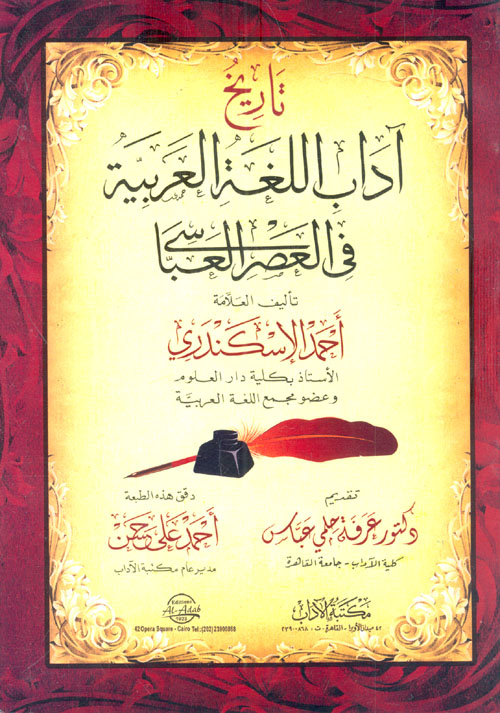 تاريخ
آداب اللغة العربية
في العصر العباسي
تأليف العلامة
أحمد الإسكندري
الأستاذ بكلية دار العلوم
وعضو مجمع اللغة العربية
تقديم
دكتور عرفة حلمي عباس
كلية الآداب - جامعة القاهرة
دقق هذه الطبعة
أحمد علي حسن
مدير عام مكتبة الآداب
مكتبة الآداب
٤٢ ميدان الأوبرا - القاهرة - ت : ٢٣٩٠٠٨٦٨
Editions
Al-Adab
1923
42 Opera Square - Cairo Tel:(202) 23900868